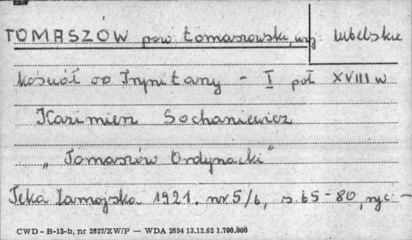 TOMASZÓW pow tomaszowski, woj lubelskie
kościół oo Trynitarzy - I poł XVIII w
Kazimierz Sochaniewicz
„Tomaszów Ordynacki"
Teka Zamojska 1921. nr 5/6, s. 65-80, ryc -
CWD - B-15-b, nr 2827/ZW/P — WDA 2694 13.12.62 1.700.000